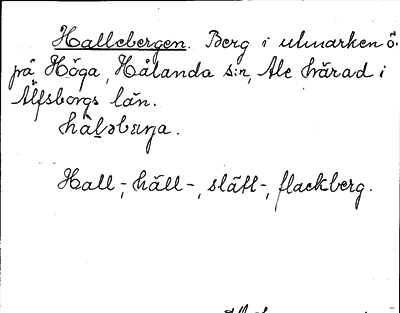 Hallebergen. Berg i utmarken ö.
på Höga, Hålanda s:n, Ale härad i
Älfsborgs län.
Hall-, häll-, slätt-, flackberg.